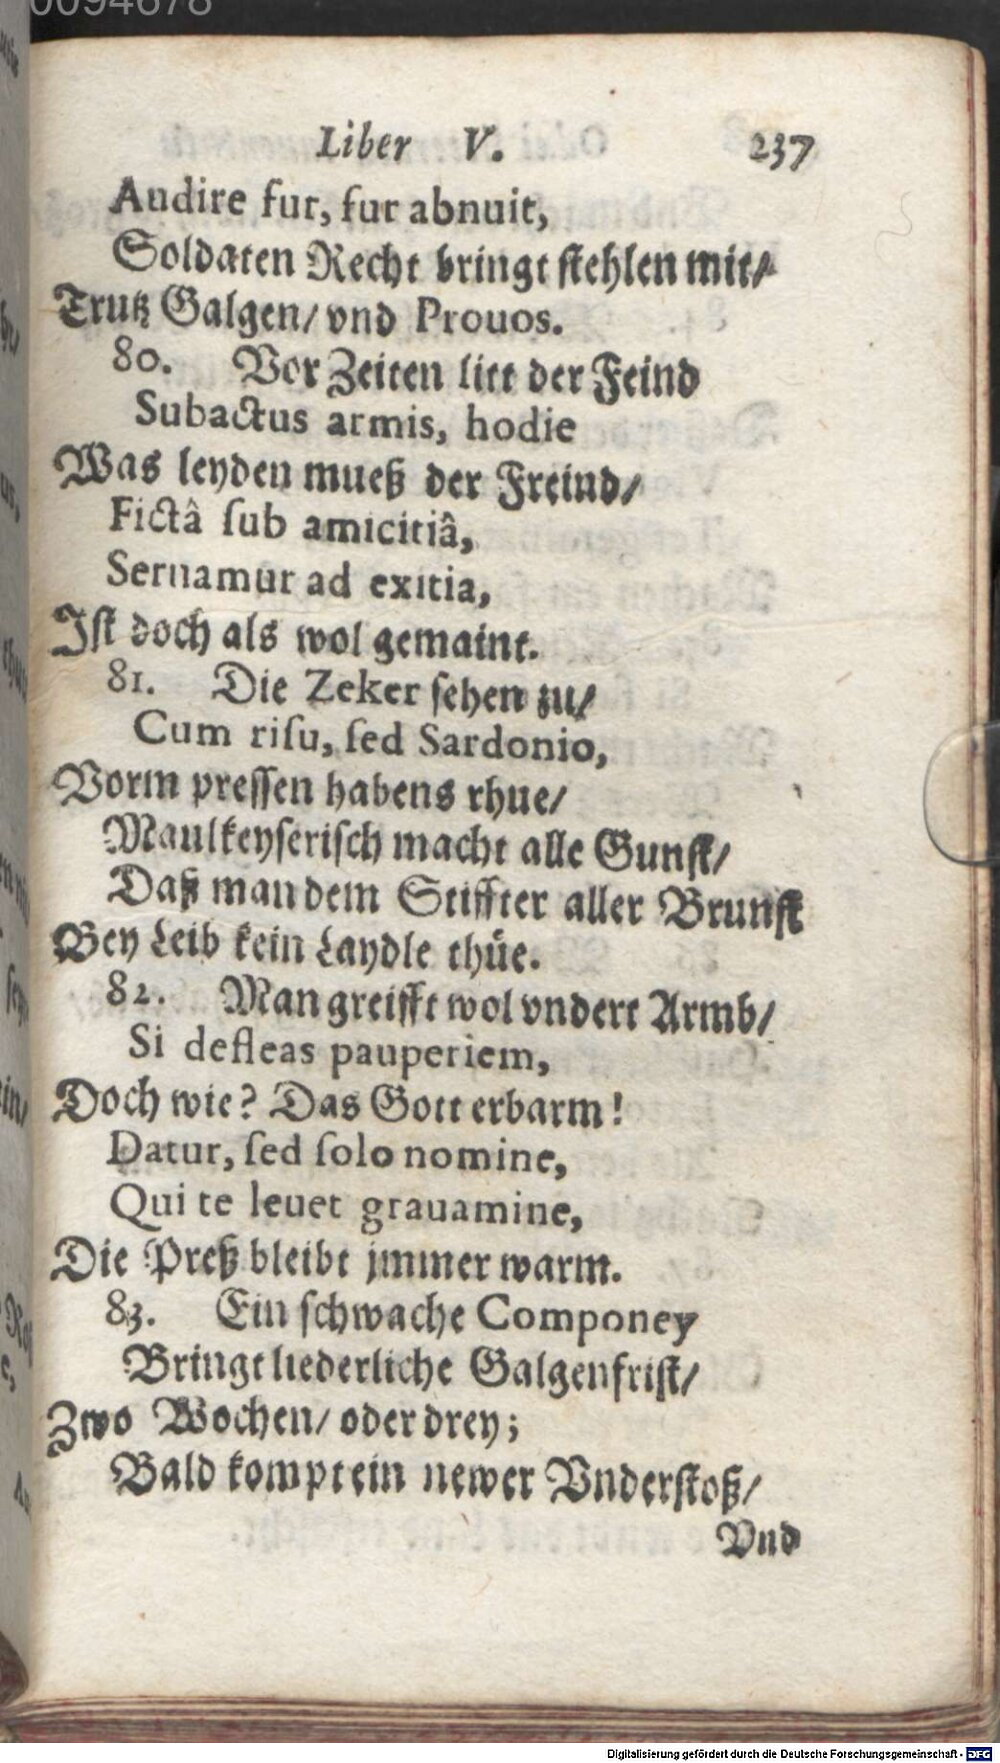 0094678
Liber V. 237
Audire fur, fur abnuit,
Soldaten Recht bringt stehlen mit/
Trutz Galgen/ vnd Prouos.
80. Vor Zeiten litt der Feind
Subactus armis, hodie
Was leyden mueß der Freind/
Fictâ sub amicitiâ,
Seruamur ad exitia,
Ist doch als wol gemaint.
81. Die Zeker sehen zu/
Cum risu, sed Sardonio,
Vorm pressen habens rhue/
Maulkeyserisch macht alle Gunst/
Daß man dem Stiffter aller Brunst
Bey Leib kein Laydle thüe.
82. Man greifft wol vndert Armb/
Si defleas pauperiem,
Doch wie? Das Gott erbarm!
Datur, sed solo nomine,
Qui te leuet grauamine,
Die Preß bleibt jmmer warm.
83. Ein schwache Componey
Bringt liederliche Galgenfrist/
Zwo Wochen/ oder drey;
Bald kompt ein newer Vnderstoß/
Vnd
Digitalisierung gefördert durch die Deutsche Forschungsgemeinschaft - DFG